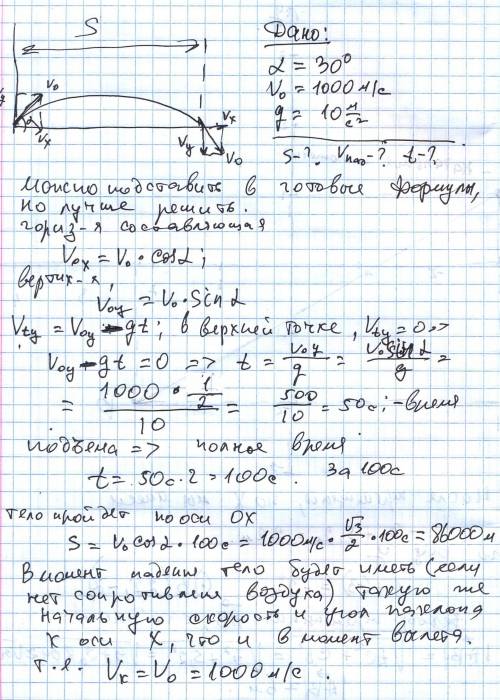 S
Дано:
α = 30°
V₀ = 1000 м/с
g = 10 м/с²
V₀ α Vx Vy Vx V₀
S-? Vпад-? t-?
Можно подставить в готовые формулы,
но лучше решить.
гориз-я составляющая
V₀x = V₀ · cosα;
вертик-я,
V₀y = V₀ · Sinα
Vty = V₀y - gt; в верхней точке, Vty = 0 =>
V₀y - gt = 0 => t = V₀y/g = V₀ Sin α/g =
= 1000 · 1/2 / 10 = 500/10 = 50с; - время
подъёма => полное время
t = 50с · 2 = 100с. За 100с
тело пройдет по оси OX
S = V₀ cosα · 100с = 1000м/с · √3/2 · 100с = 86000м
В момент падения тело будет иметь (если
нет сопротивления воздуха) такую же
начальную скорость и угол наклона
к оси X, что и в момент вылета.
т.е. Vк = V₀ = 1000 м/с.